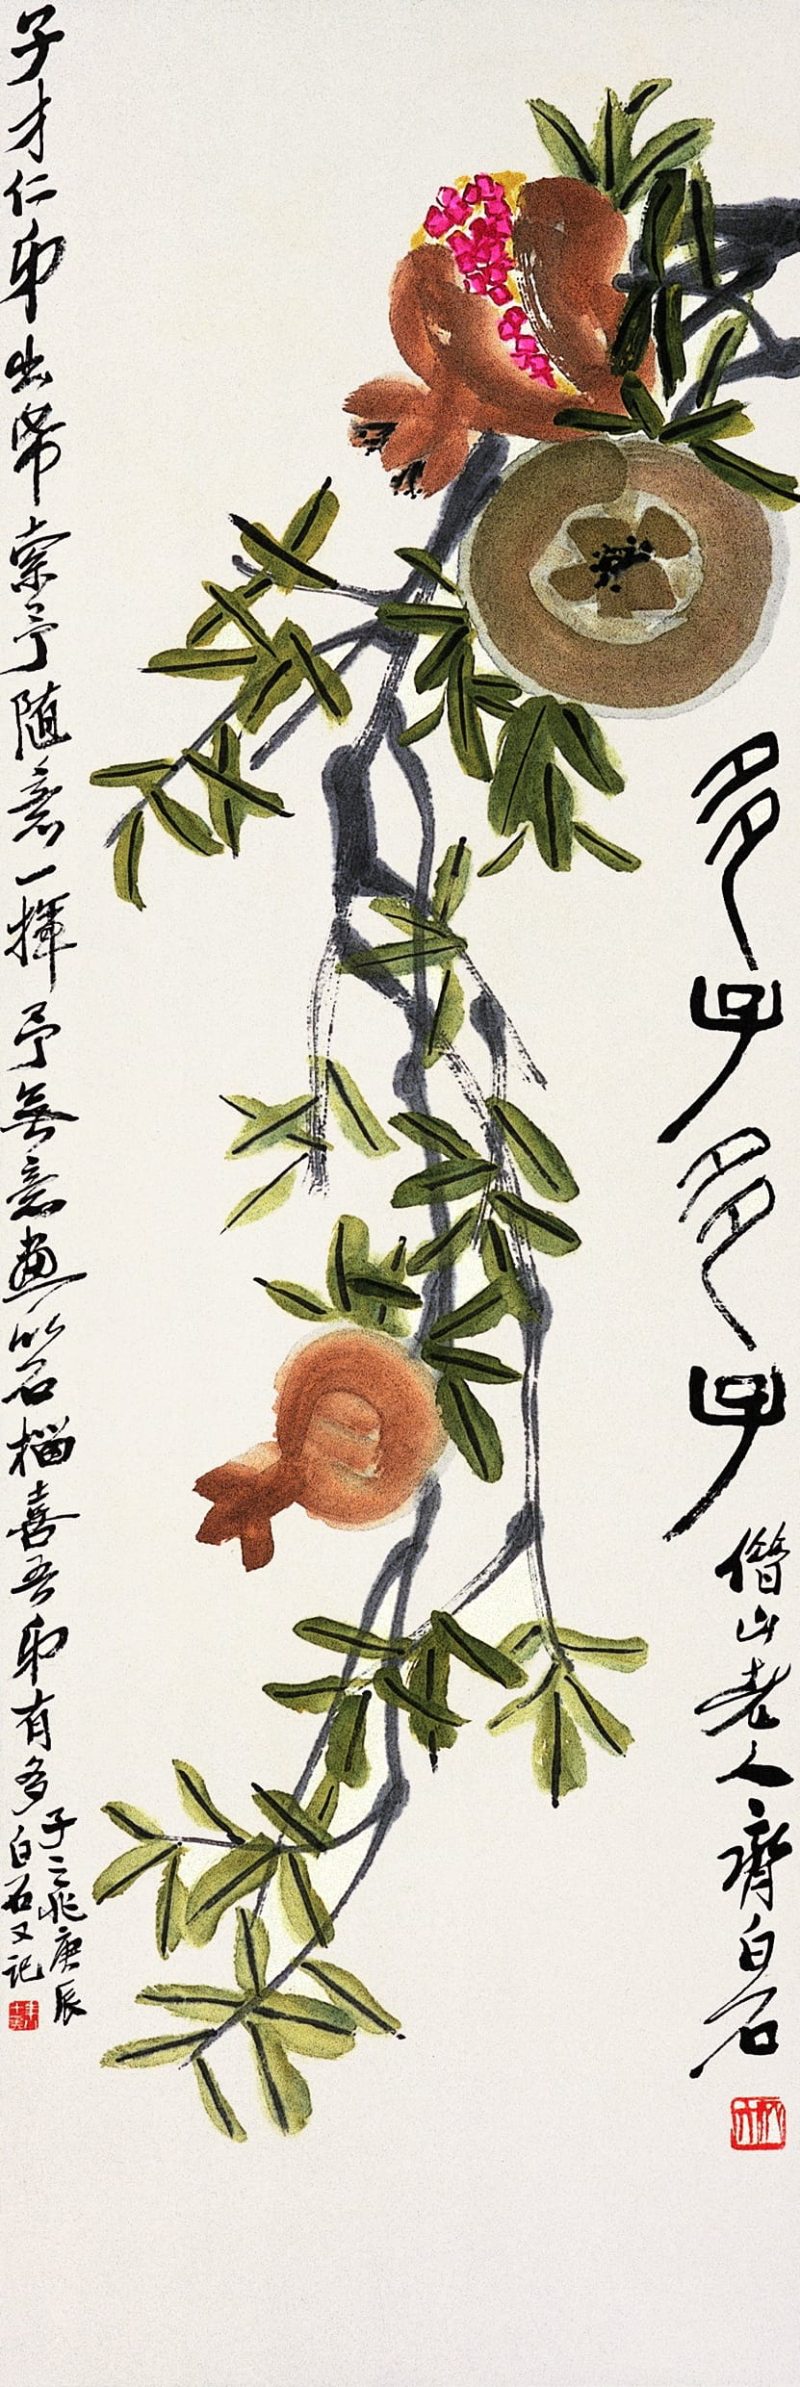 多子多子借山老人齊白石
子才仁弟出帋索予隨意一揮予無意畫此石榴喜吾弟有多
子之兆庚辰
白石又記